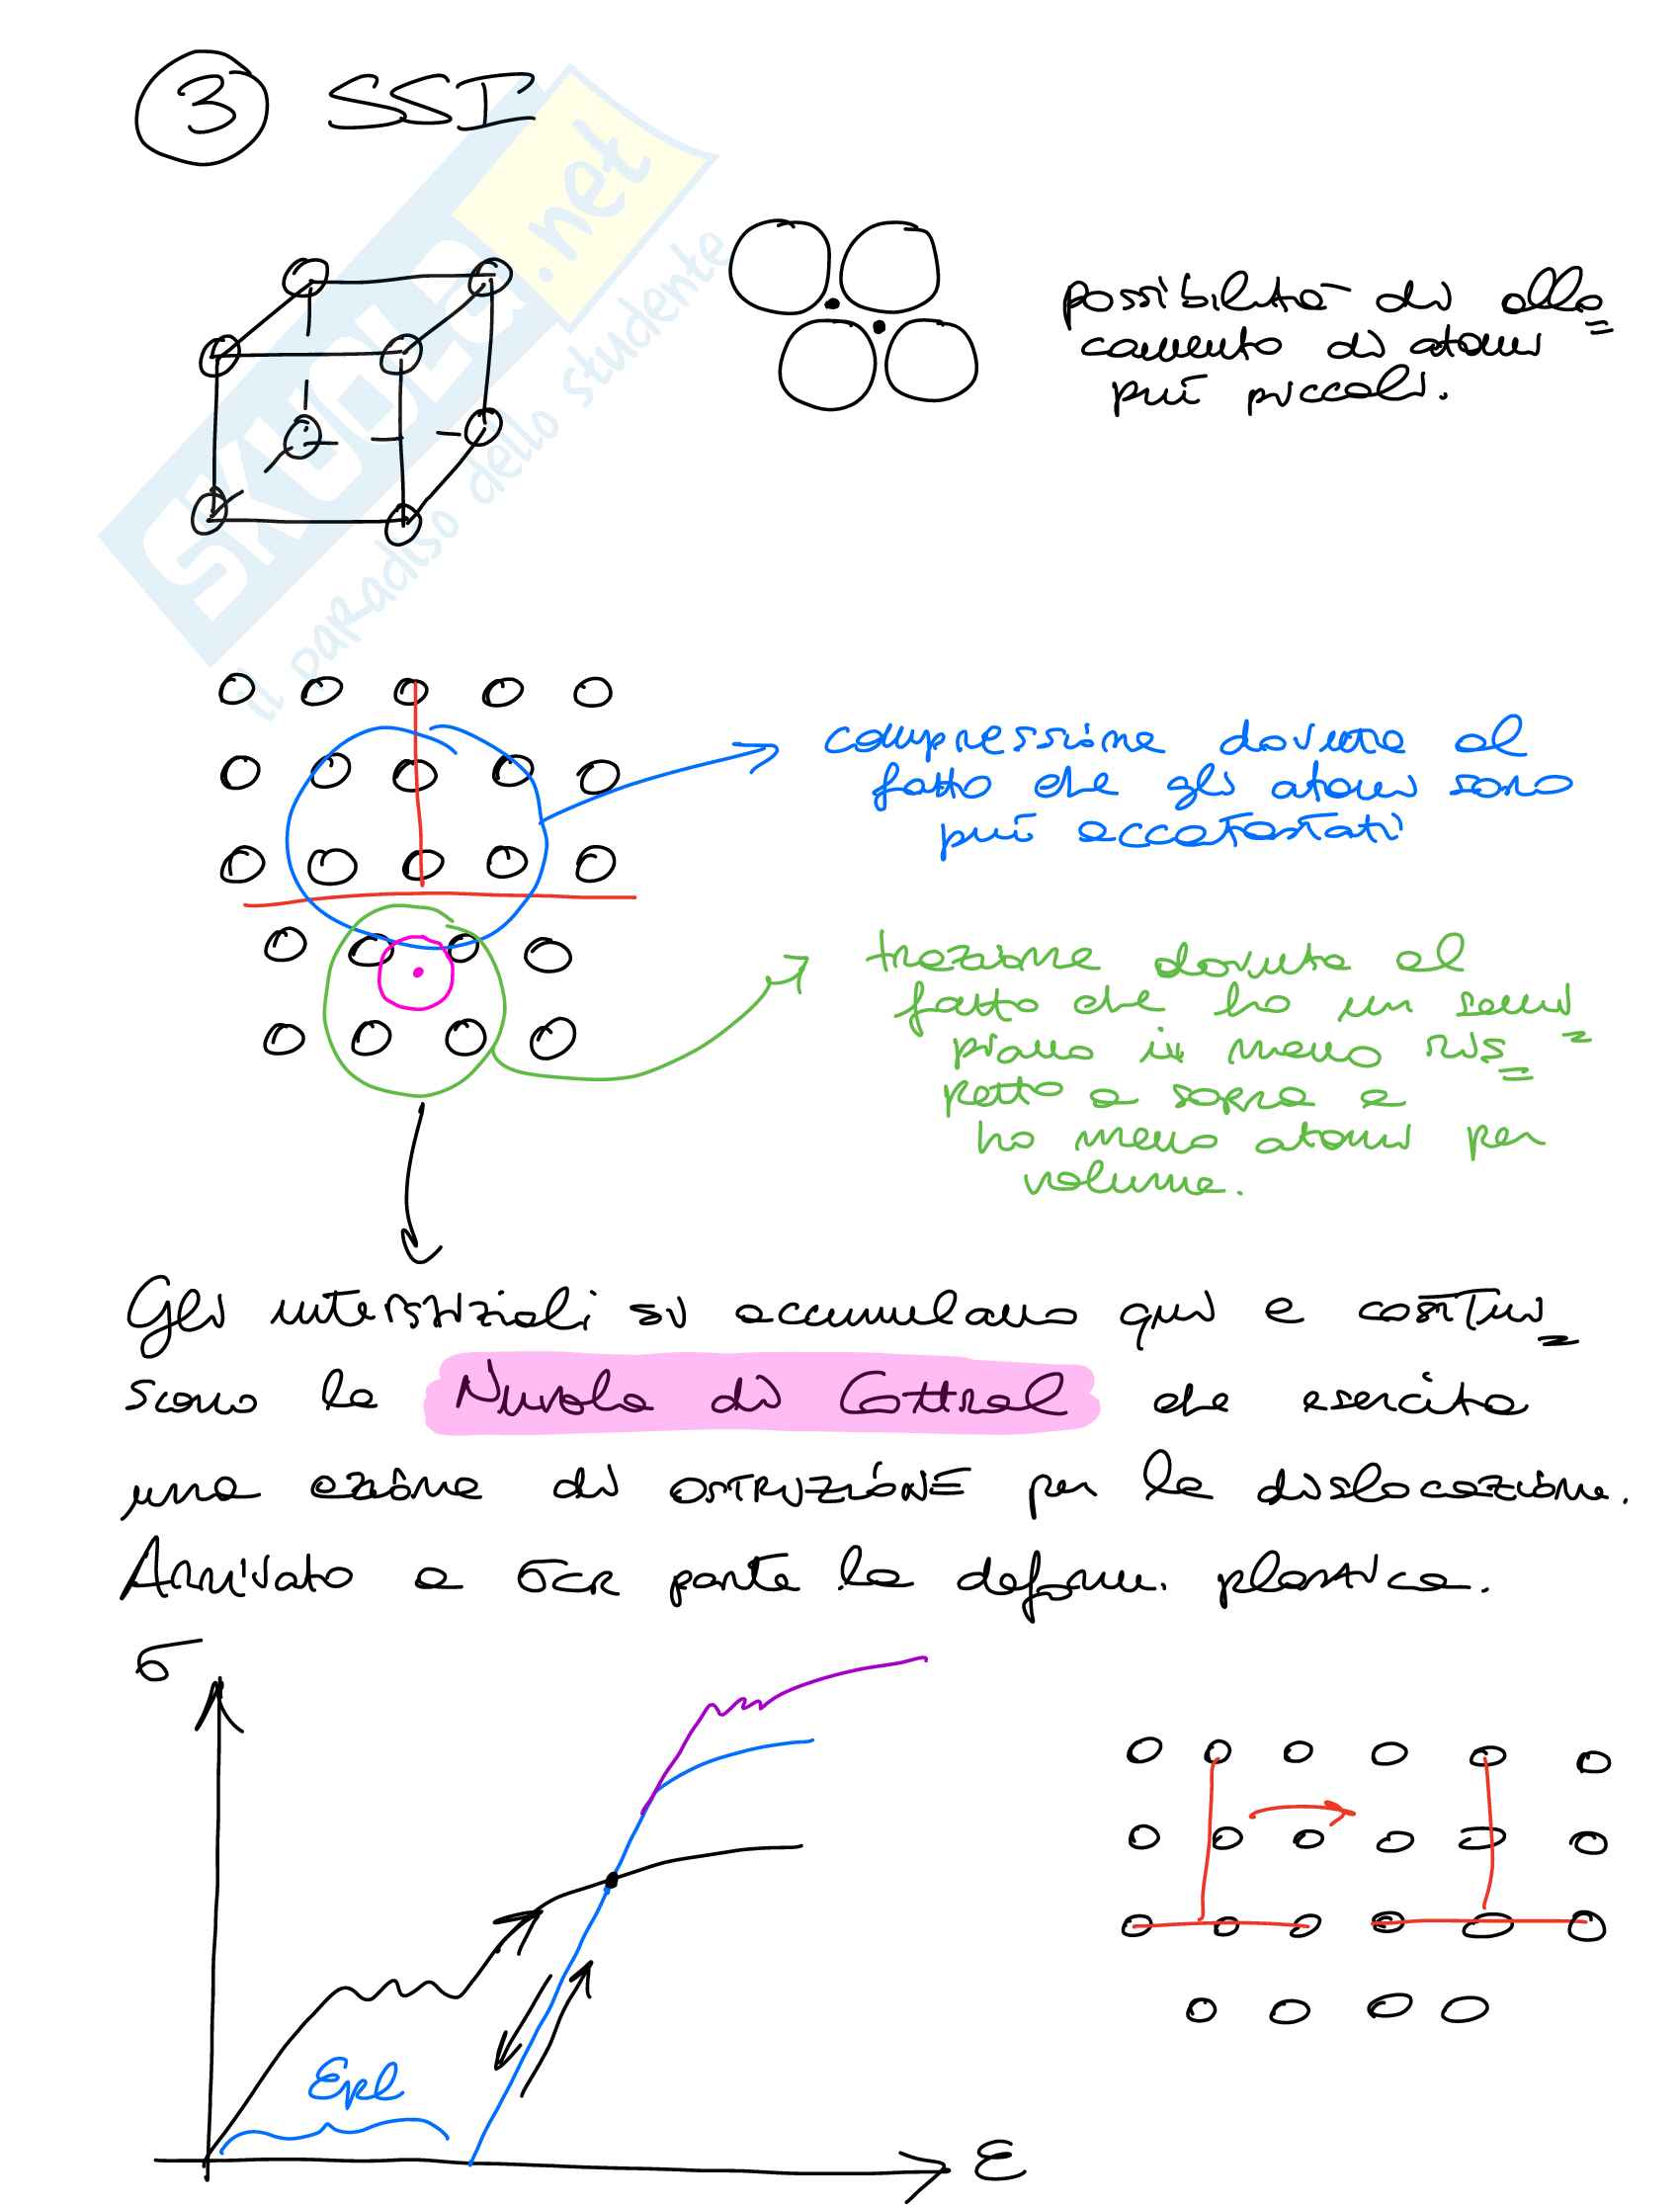 3 SSI
SKUOLA.net
il paradiso dello studente
possibilità di allo=
camento di atomi
più piccoli.
compressione dovuta al
fatto che gli atomi sono
più accatastati
trazione dovuta al
fatto che ho un semi=
piano in meno ris=
petto a sopra e
ho meno atomi per
volume.
Gli interstiziali si accumulano qui e costitui=
scono la Nuvola di Cottrel che esercita
una azione di OSTRUZIONE per la dislocazione.
Arrivato a σCR parte la deform. plastica.
σ
Epl
ε